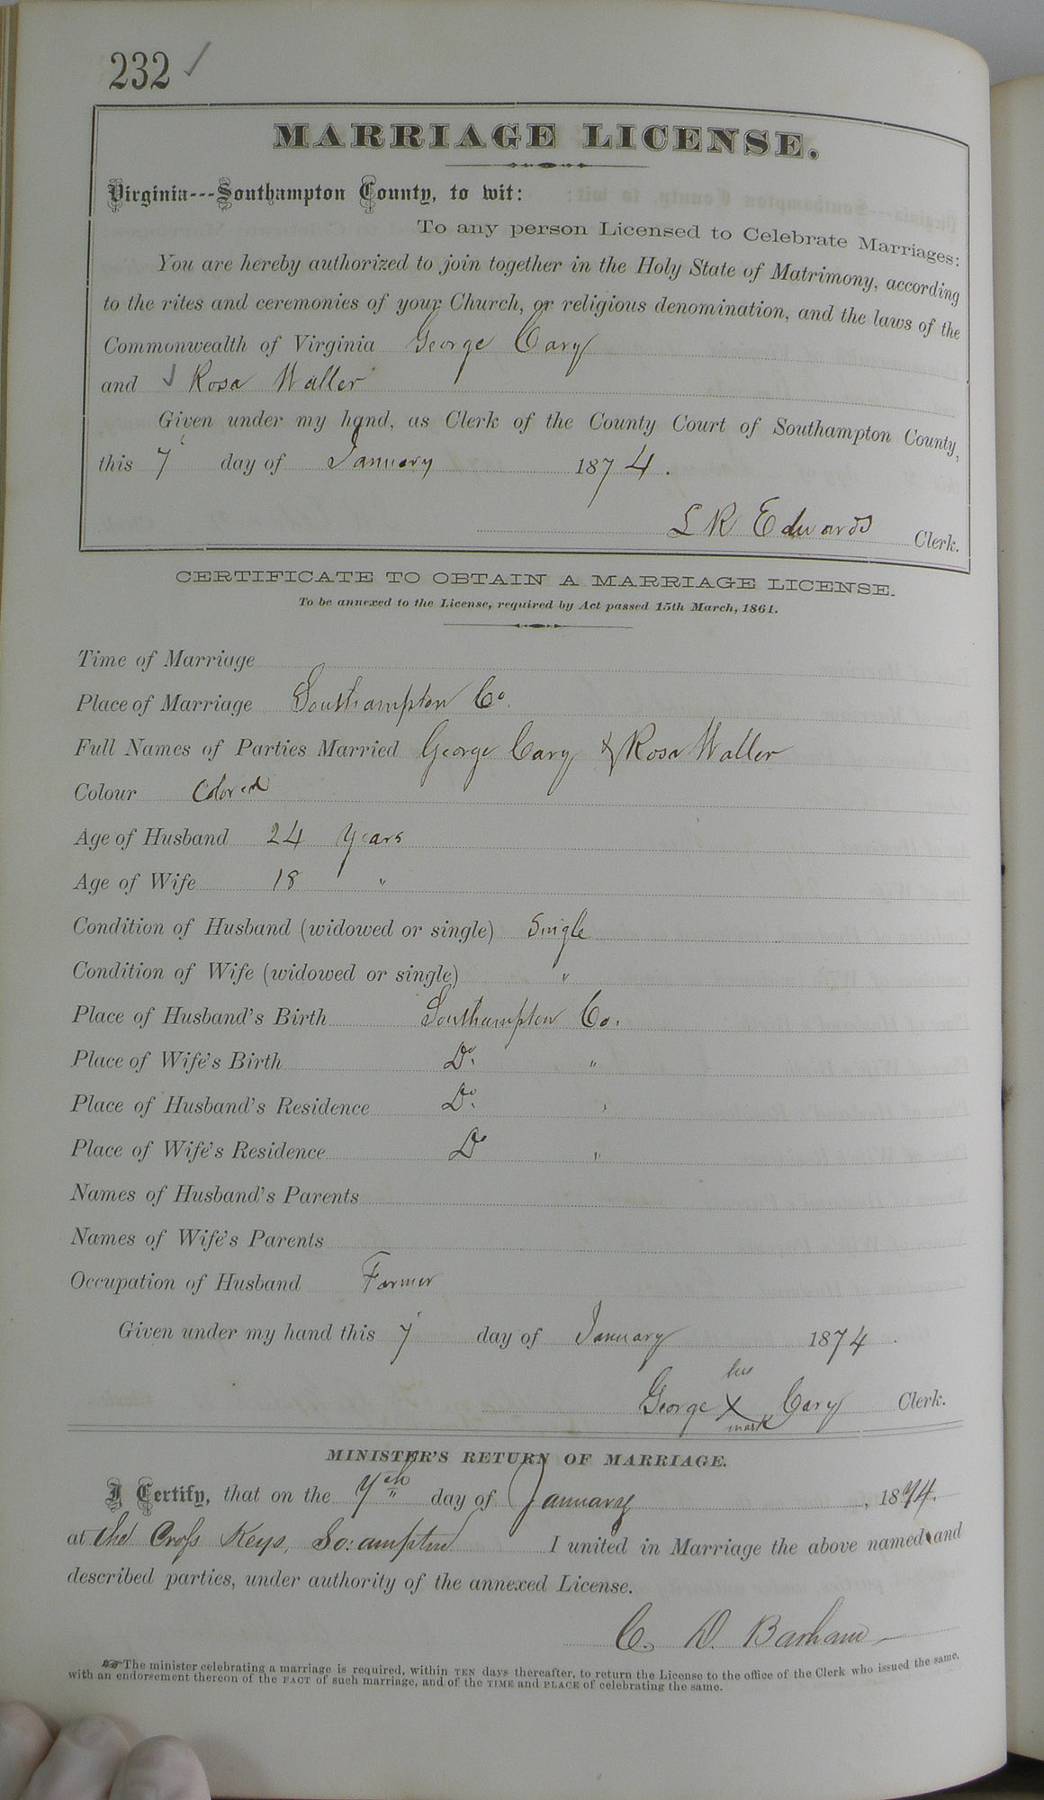 232 ✓
MARRIAGE LICENSE.
Virginia---Southampton County, to wit:
To any person Licensed to Celebrate Marriages:
You are hereby authorized to join together in the Holy State of Matrimony, according
to the rites and ceremonies of your Church, or religious denomination, and the laws of the
Commonwealth of Virginia George Cary
and ✓ Rosa Waller
Given under my hand, as Clerk of the County Court of Southampton County,
this 7 day of January 1874.
L R Edwards Clerk.
CERTIFICATE TO OBTAIN A MARRIAGE LICENSE.
To be annexed to the License, required by Act passed 15th March, 1861.
Time of Marriage
Place of Marriage Southampton Co.
Full Names of Parties Married George Cary & Rosa Waller
Colour Colored
Age of Husband 24 Years
Age of Wife 18 "
Condition of Husband (widowed or single) Single
Condition of Wife (widowed or single) "
Place of Husband's Birth Southampton Co.
Place of Wife's Birth Do. "
Place of Husband's Residence Do. "
Place of Wife's Residence Do "
Names of Husband's Parents
Names of Wife's Parents
Occupation of Husband Farmer
Given under my hand this 7 day of January 1874.
his
George X Cary Clerk.
mark
MINISTER'S RETURN OF MARRIAGE.
I Certify, that on the 7th day of January, 1874.
at the Cross Keys, So:ampton I united in Marriage the above named and
described parties, under authority of the annexed License.
C. D. Barham
☞ The minister celebrating a marriage is required, within TEN days thereafter, to return the License to the office of the Clerk who issued the same,
with an endorsement thereon of the FACT of such marriage, and of the TIME and PLACE of celebrating the same.